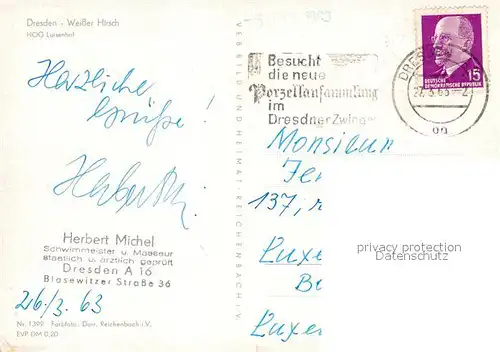 Dresden - Weißer Hirsch
HOG Luisenhof
Herzliche
Grüße!
Herbert M.
Herbert Michel
Schwimmeister u. Masseur
staatlich u. ärztlich geprüft
Dresden A 16
Blasewitzer Straße 36
26/3. 63
Nr. 1399 Farbfoto: Darr, Reichenbach i.V.
EVP DM 0,20
VERBILD UND HEIMAT REICHENBACH i. V.
Besucht
die neue
Porzellansammlung
im
Dresdner Zwinger
DRESDEN
27.3.63
15
DEUTSCHE
DEMOKRATISCHE REPUBLIK
Monsieur
137,
Luxe
Luxe
privacy protection
Datenschutz